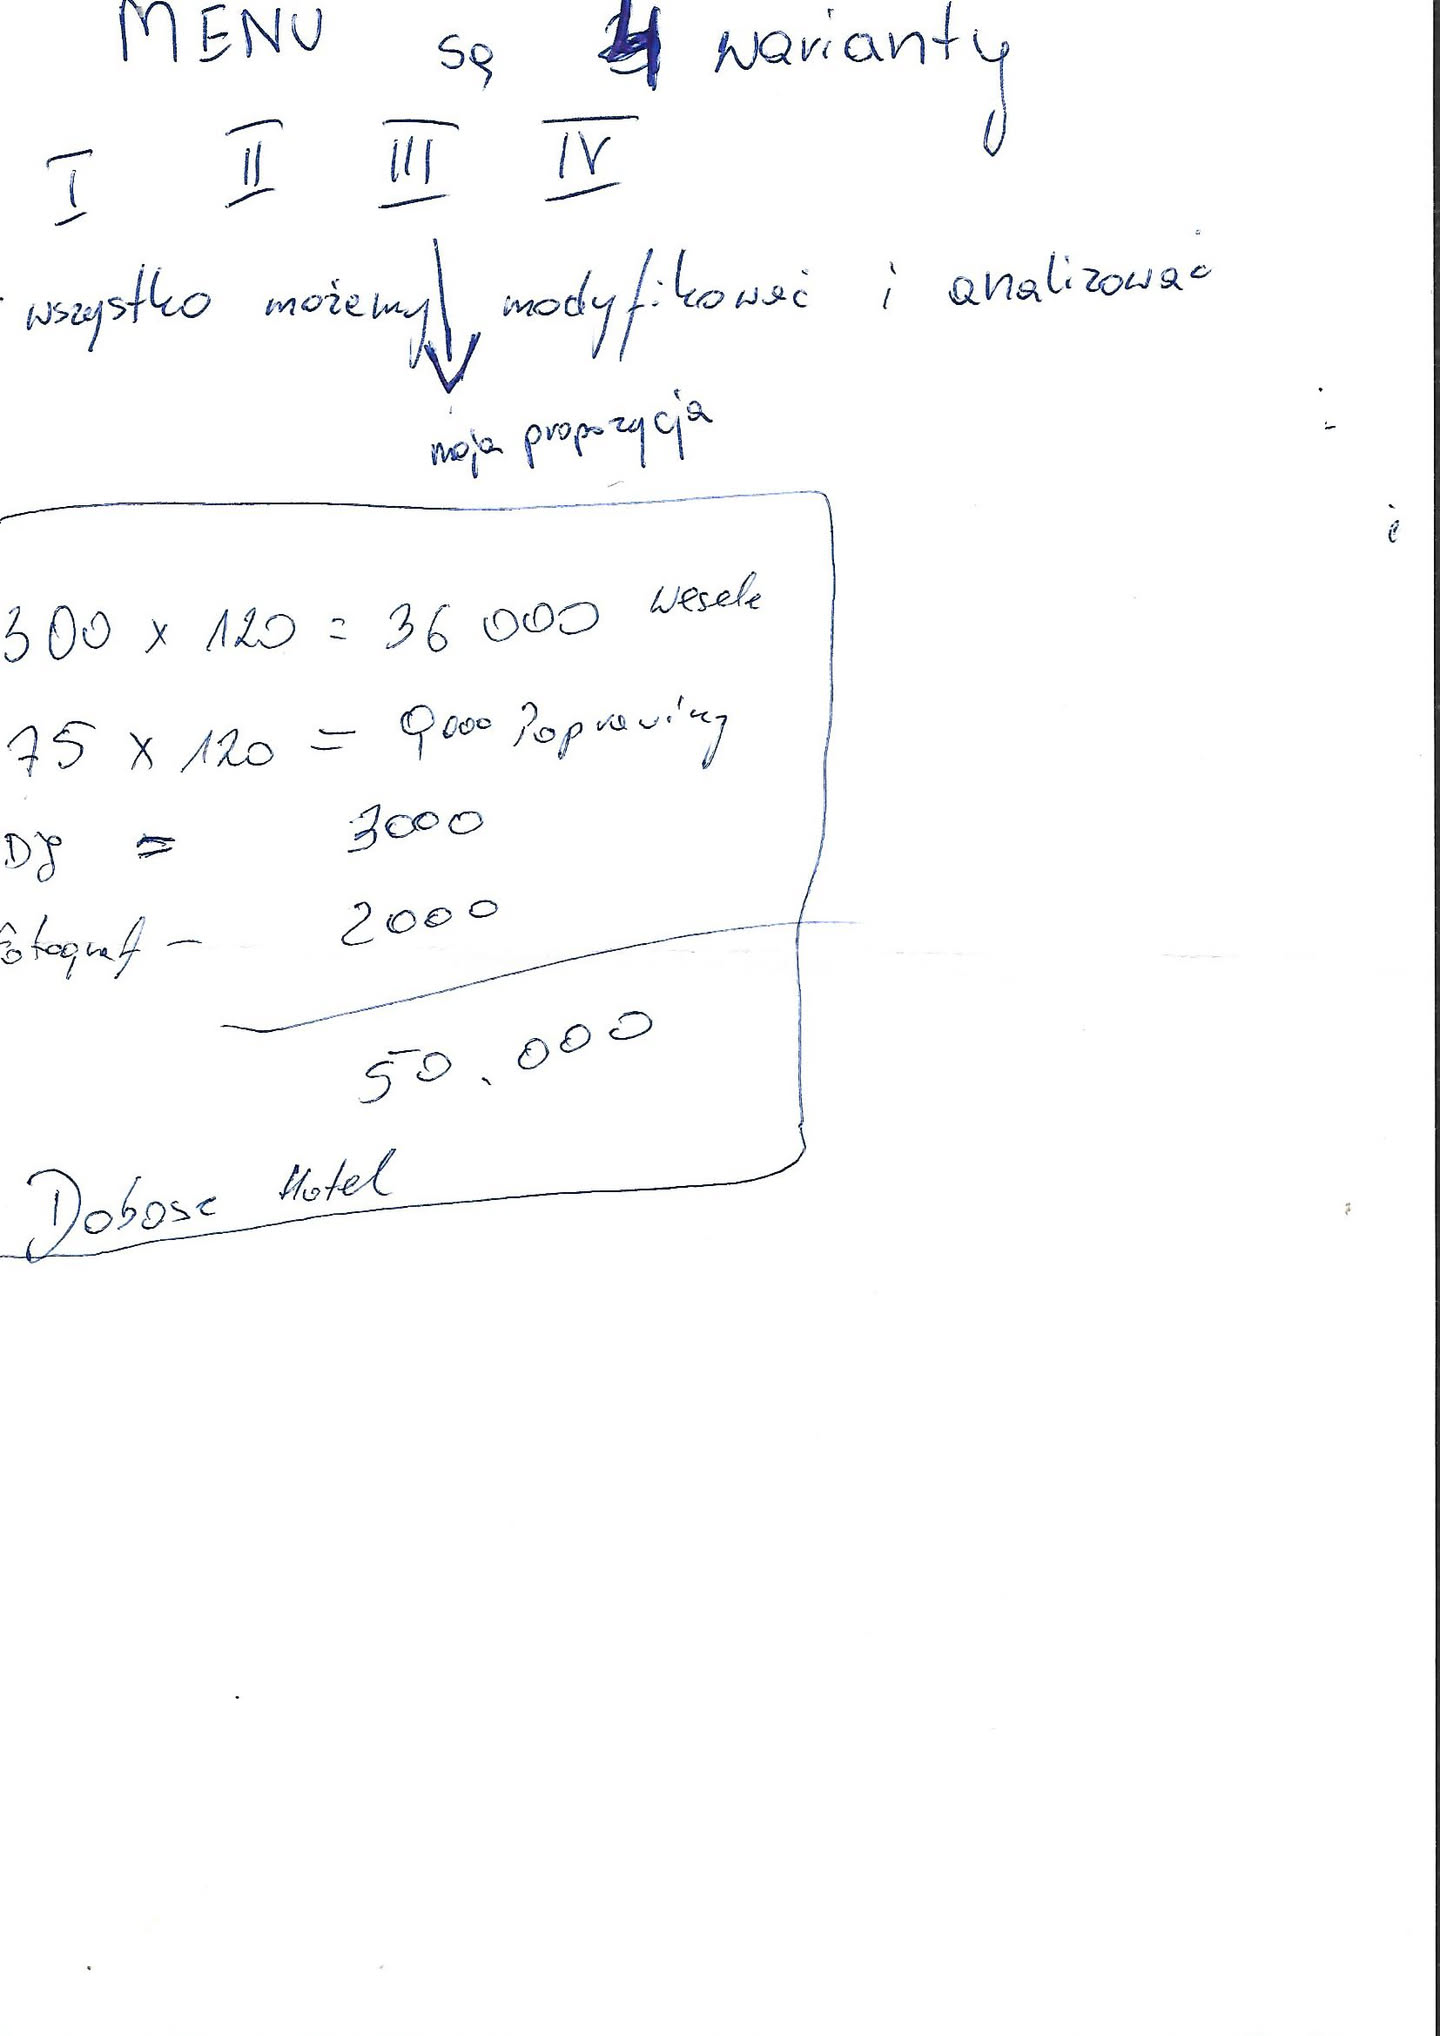 MENU są 4 warianty
I II III IV
wszystko możemy modyfikować i analizować
moja propozycja
300 x 120 = 36 000 wesele
75 x 120 = 9000 Poprawiny
DJ = 3000
fotograf - 2000
50.000
Dobosz Hotel